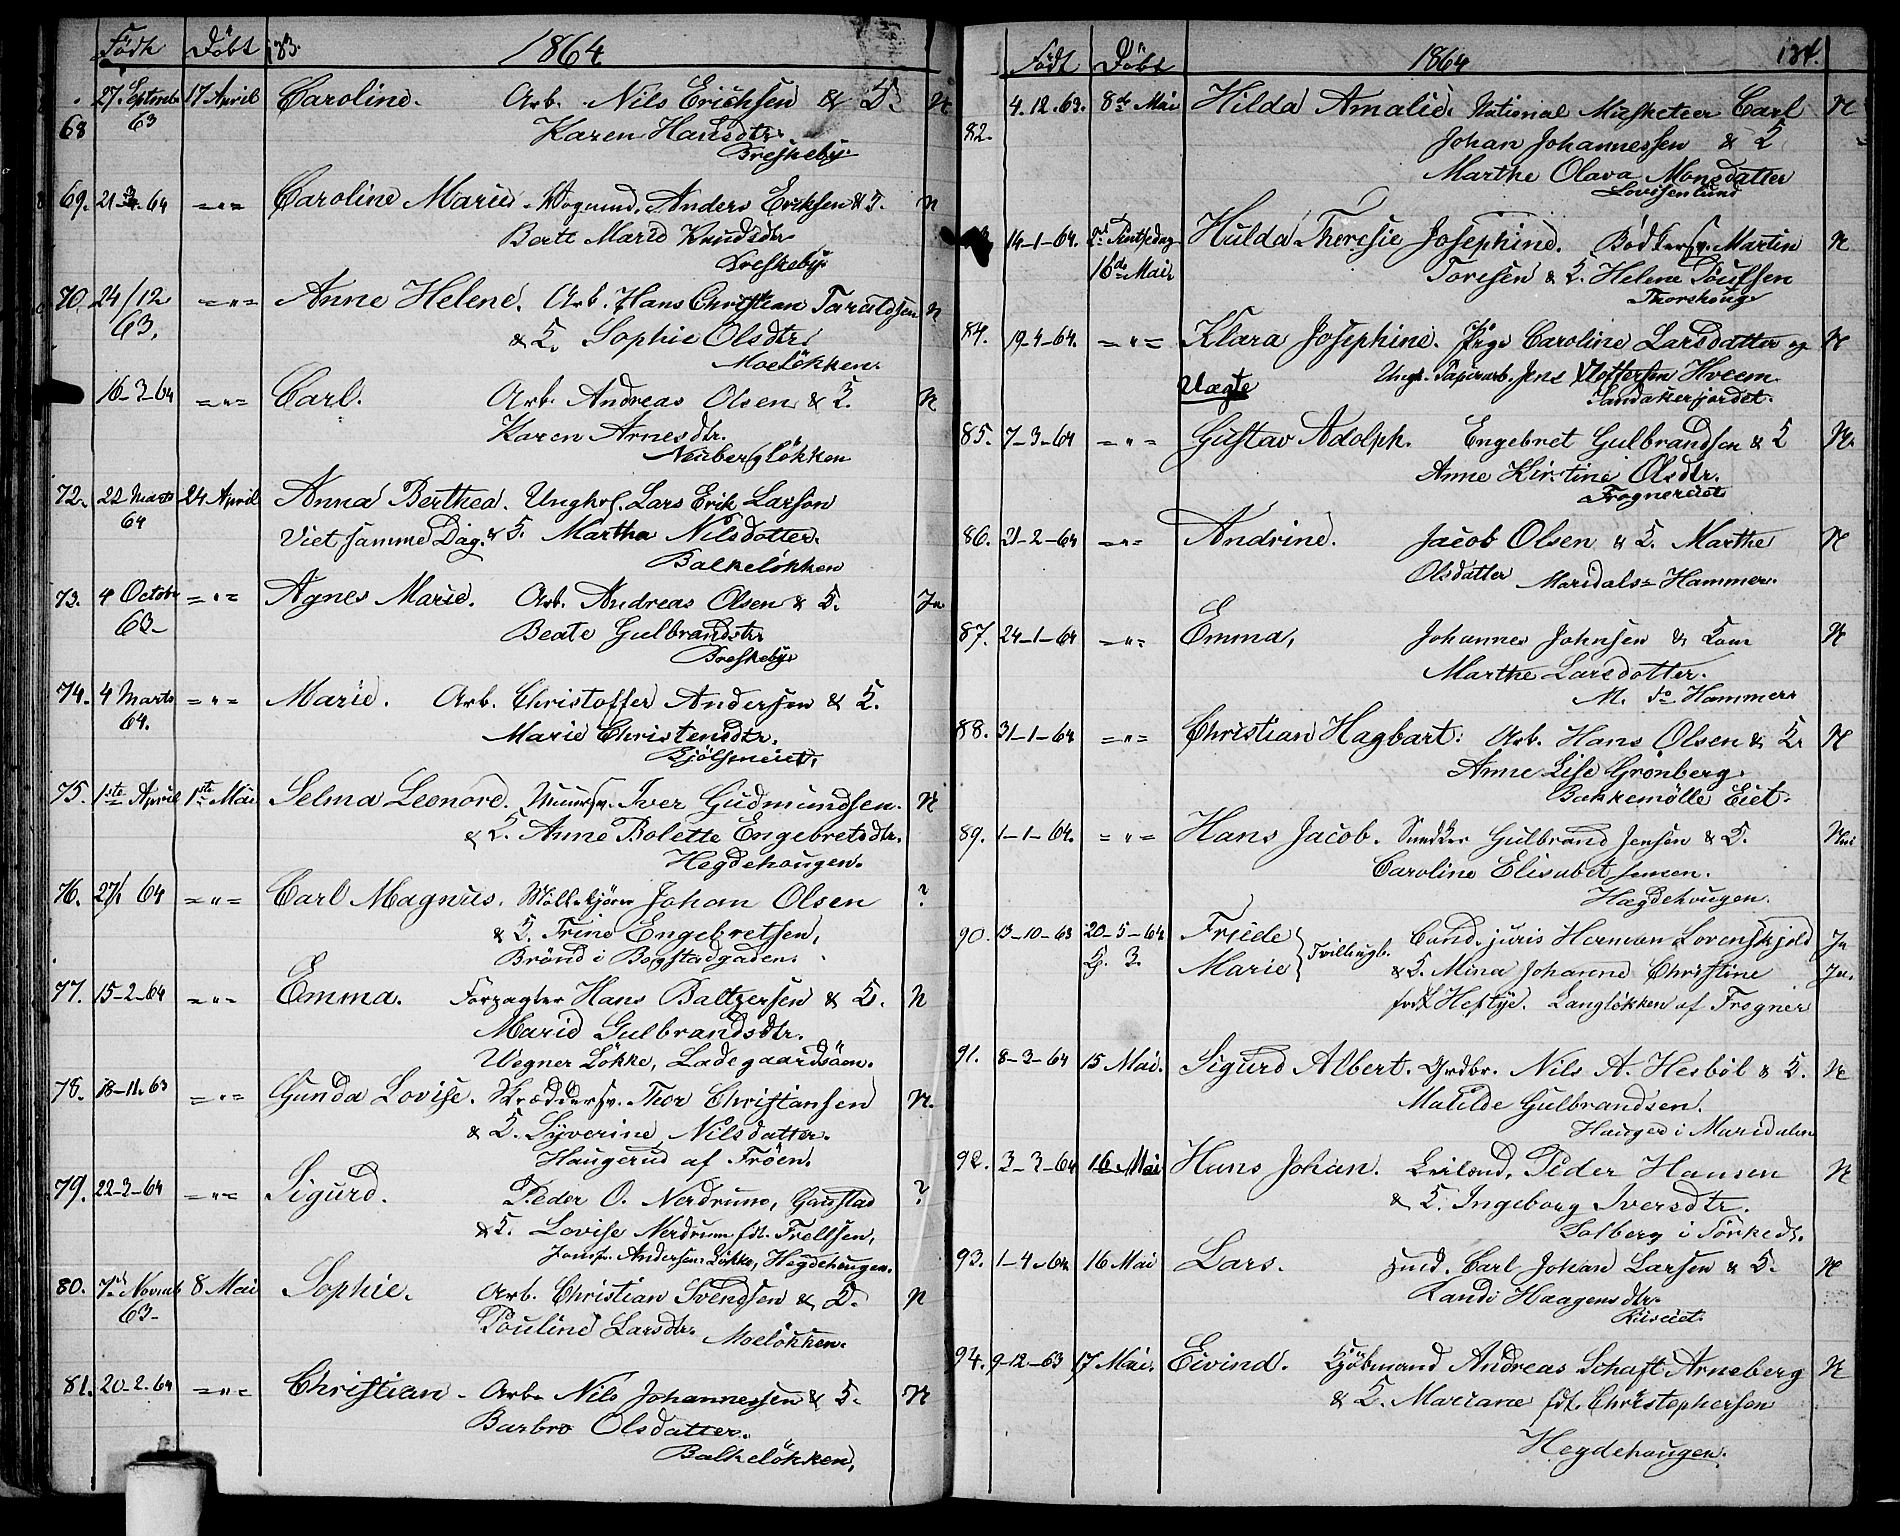 Födt Döbt 133. 1864
27 Septembr 17 April Caroline. Arb. Nils Erichsen & K. N
68 63 Karen Hansdtr.
Breskeby.
69. 21-3-64 -"- Caroline Marie. Vognmd. Anders Eriksen & K. N
Berte Marie Knudsdtr
Breskeby.
70. 24/12 -"- Anne Helene. Arb. Hans Christian Taraldsen N
63. & K. Sophie Olsdtr.
Moeløkken.
16-3-64 -"- Carl. Arb. Andreas Olsen & K. N
Karen Arnesdtr.
Neubergløkken
72. 22 Marts 24 April Anna Berthea. Ungkrl. Lars Erik Larson
64 Viet samme Dag. & K. Martha Nilsdotter.
Balkeløkken
73. 4 Octobr -"- Agnes Marie. Arb. Andreas Olsen & K. Ja
63- Beate Gulbrandsdtr
Breskeby.
74. 4 Marts -"- Marie. Arb. Christoffer Andersen & K.
64. Marie Christensdtr.
Bjölseneiet.
75. 1ste April 1ste Mai Selma Leonore. Muursv. Iver Gudmundsen. N
& K. Anne Bolette Engebretsdtr.
Hegdehougen.
76. 64 -"- Carl Magnus. Johan Olsen ?
& K. Trine Engebretsen,
Brönd i Bogstadgaden.
77. 15-2-64 -"- Emma. Forpagter Hans Baltzersen & K. N
Marie Gulbrandsdtr.
Wegner Løkke, Ladegaardsöen.
78. 18-11.63 -"- Gunda Lovise. Skræddersv. Thor Christiansen N.
& K. Syverine Nilsdatter.
Haugerud af Fröen.
79. 22-3-64 -"- Sigurd. Peder O. Nerdrum, Gaustad ?
& K. Lovise Nerdrum fdt. Frellsen,
Jomfr. Andersens Løkke, Hegdehougen.
80. 7de Novemb 8 Mai Sophie. Arb. Christian Svendsen & K. N
63- Pouline Larsdtr. Moeløkken.
81. 20-2.64 -"- Christian - Arb. Nils Johannessen & K. N
Barbro Olsdatter.
Balkeløkken,
Födt Döbt 1864 134.
4.12.63. 8de Mai Hilda Amalie. National Musketeer Carl N
82. Johan Johannessen & K
Marthe Olava Monsdatter
Lovisenlund
14-1-64. 2d Pintsedag Hulda Theresie Josephine. Bødkersv. Martin N
16de Mai. Toresen & K. Helene
Thorshoug.
84. 19-4-64. -"- Klara Josephine. Pige Caroline Larsdatter og N
Uægte Ungk. Papirarb. Jens Hveem
Sandakerjordet.
85. 7-3-64 -"- Gustav Adolph. Engebret Gulbrandsen & K N.
Anne Kirstine Olsdtr.
Frognereiet
86. 21-2-64 -"- Andrine. Jacob Olsen & K. Marthe N
Olsdatter Maridals-Hammer.
87. 24-1-64 -"- Emma, Johannes Johnsen & Kone N
Marthe Larsdotter.
M. do Hammer
88. 31-1-64 -"- Christian Hagbart. Arb. Hans Olsen & K. N
Anne Lise Grønberg.
Bakkemølle Eiet.
89. 1-1-64. -"- Hans Jacob. Snedker Gulbrand Jensen & K. Nei
Caroline Elisabet Jensen.
Hægdehougen.
90. 13-10-63 20-5-64 Friede Tvillingb. Cand. juris Herman Lorenskjold Ja
K. 3. Marie & K. Mina Johanne Christine Ja.
født Heftye. Langløkken af Frogner
91. 8-3-64 15 Mai. Sigurd Albert. Grdbr. Nils A. Hesböl & K. N
Matilde Gulbrandsen.
Hauger i Maridalen
92. 3-3-64 16 Mai Hans Johan. Leilend. Peder Hansen N
& K. Ingeborg Iversdtr.
Solberg i Sörkedt.
93. 1-4-64 16 Mai Lars. Hmd. Carl Johan Larsen & K. N
Randi Haagensdtr.
94. 9-12-63 17 Mai. Eivind. Kjöbmand Andreas Schaft Arneberg N
& K. Mariane fdt. Christophersen
Hegdehougen.